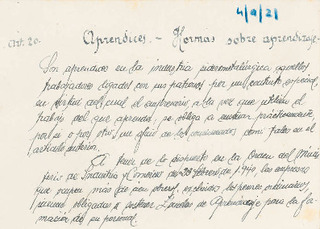 4/9/21
Art. 20. Aprendices.- Normas sobre aprendizaje.-
Son aprendices en la industria siderometalúrgica aquellos
trabajadores ligados con sus patronos por un contrato especial
en virtud del cual el empresario a la vez que utiliza el
trabajo del que aprende, se obliga a enseñar prácticamente,
por sí o por otro, un oficio de los en el
artículo anterior.
A tenor de lo dispuesto en la Orden del Minis
terio de Industria y Comercio de 23 Febrero de 1940, las empresas
que ocupen más de cien obreros, excluidos los peones ordinarios,
vienen obligadas a sostener Escuelas de Aprendizaje para la for-
mación de su personal.